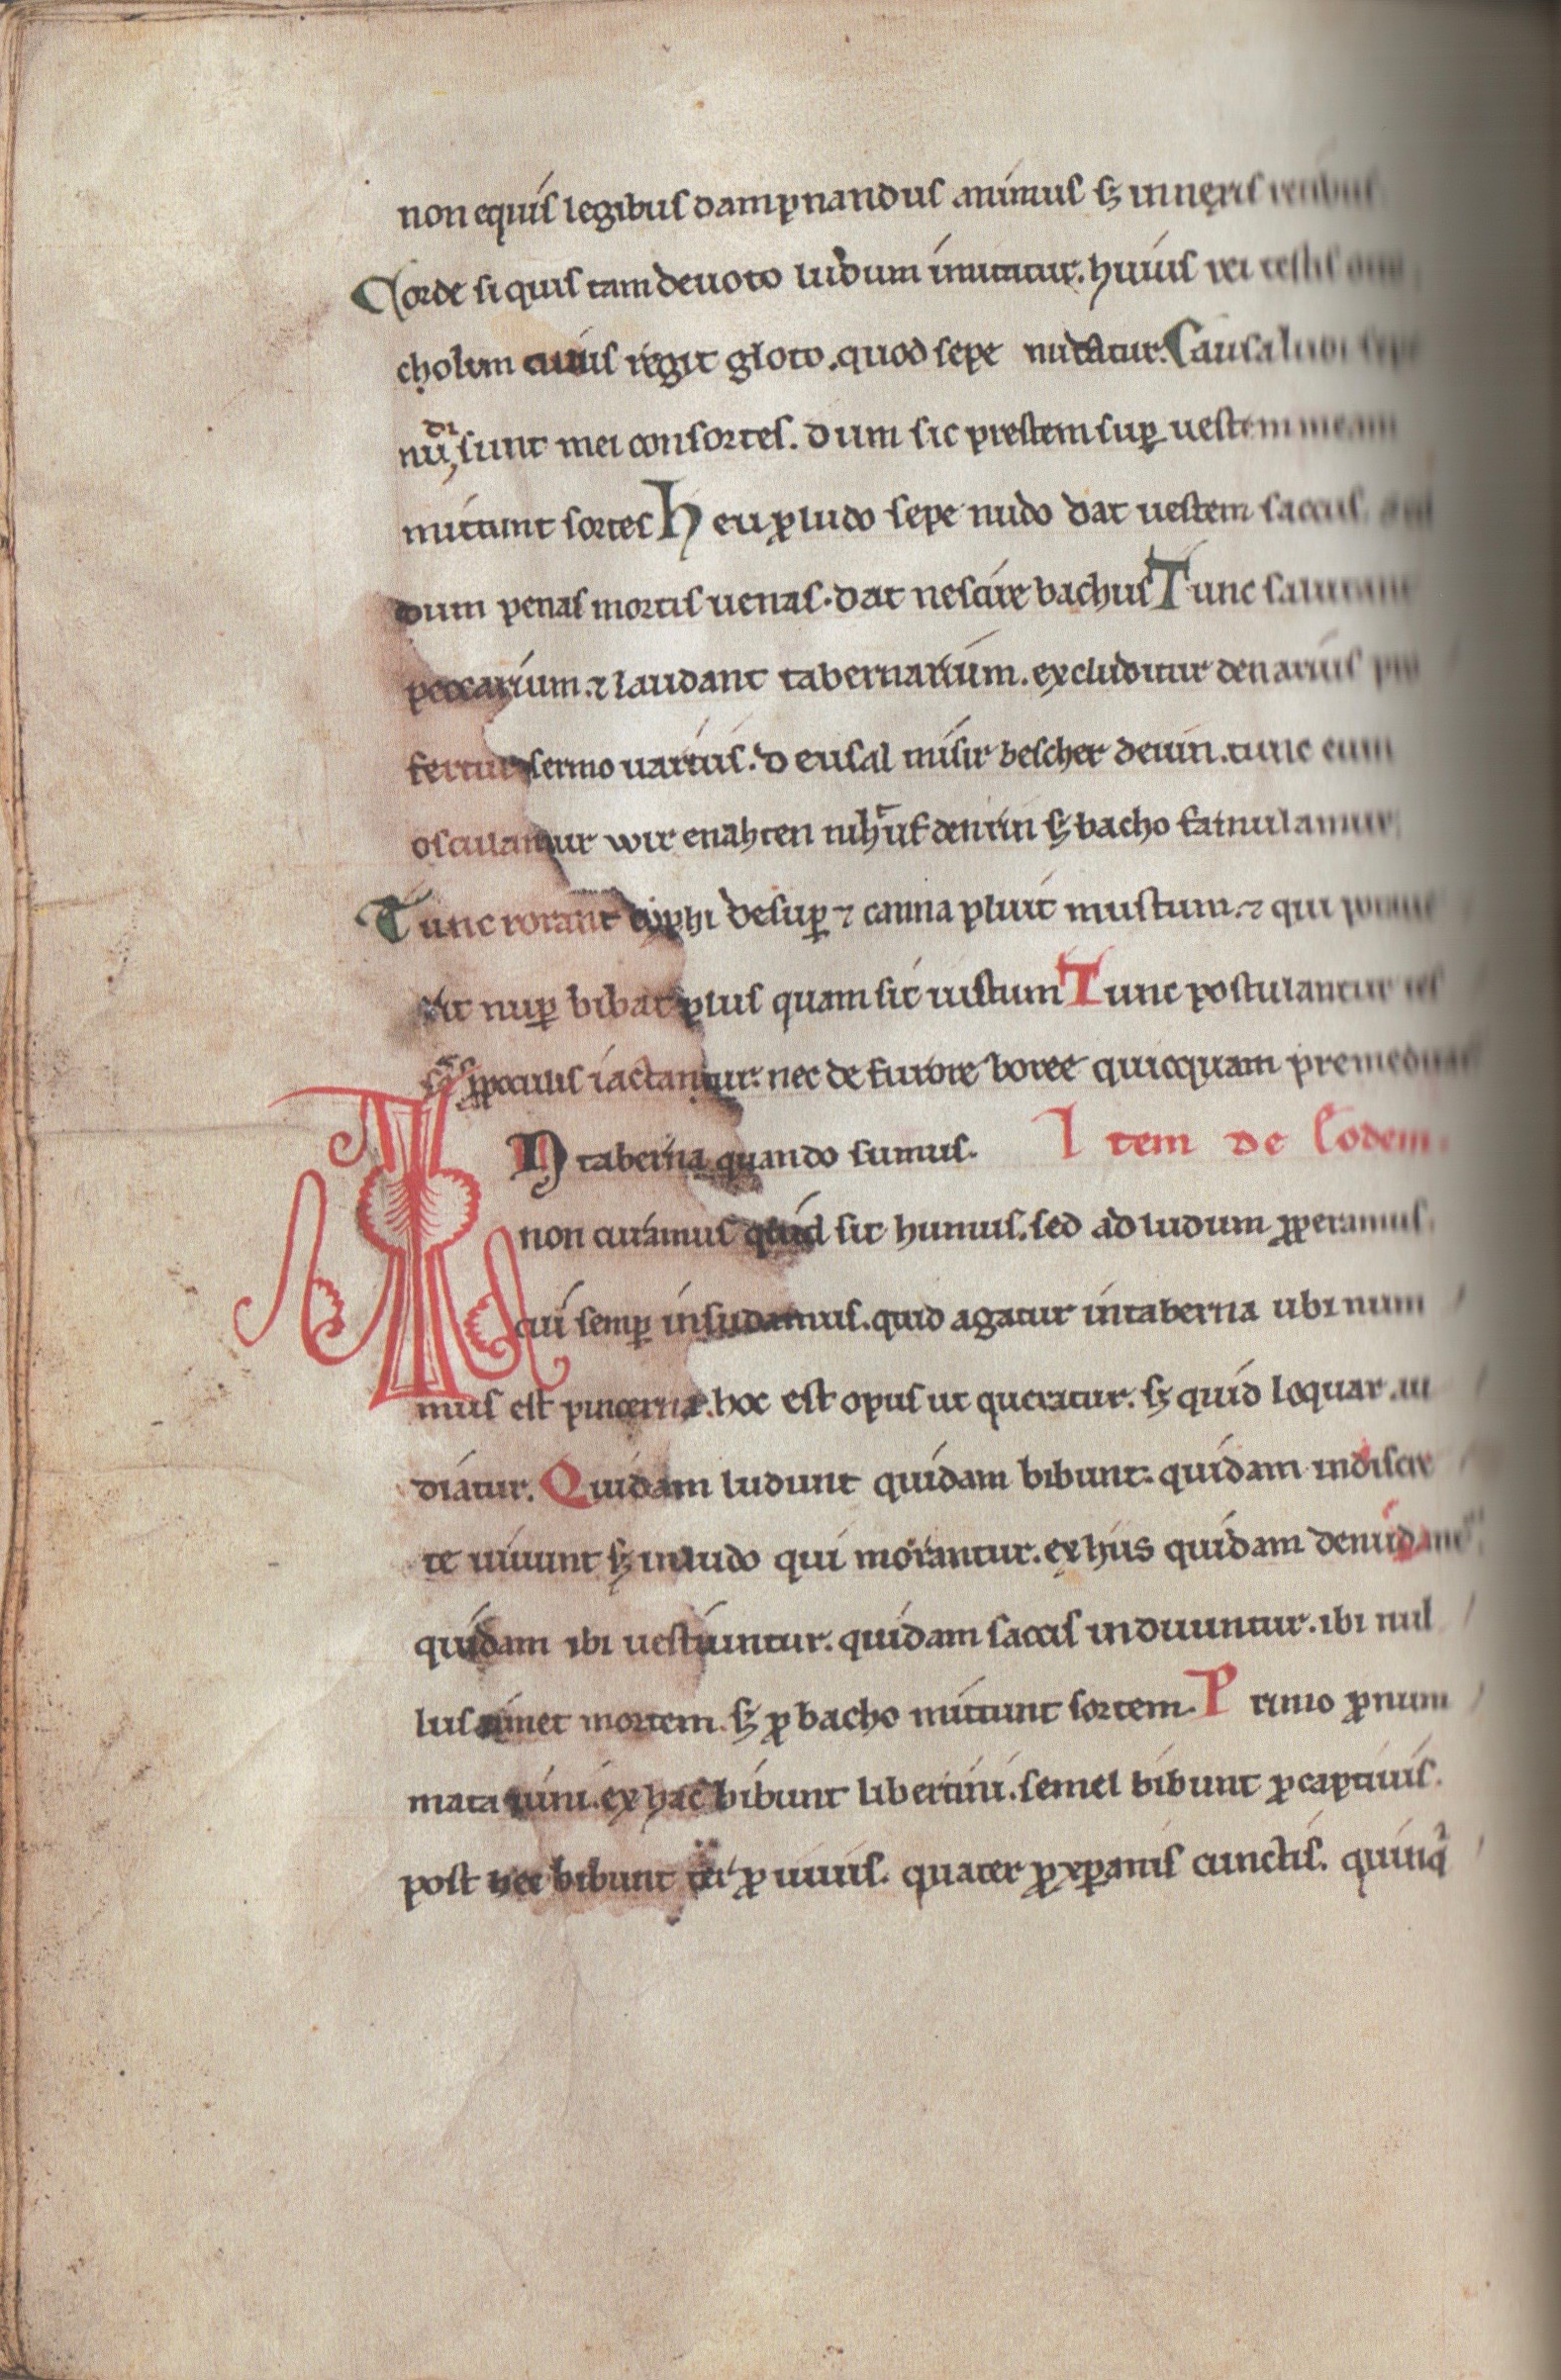 non equis legibus dampnandus animus sꝫ in neris retibus
Corde si quis tam deuoto ludum imitatur. huius rei testis
cholum cuius regit gloto. quod sepe nudatur. Causa ludi sepe
nudi sunt mei consortes. dum sic prestem suꝑ uestem meam
mittunt sortes Heu ꝓ ludo sepe nudo dat uestem saccus.
dum penas mortis uenas. dat nescire bachus Tunc salutant
peccarium. ⁊ laudant tabernarium. excluditur denarius
fertur sermo uarius. deusal misir bescher deuin. tunc eum
osculamur wir enahten niht uf den rin sꝫ bacho famulamur
Tunc rorant cyphi desuꝑ ⁊ canna pluit mustum. ⁊ qui
nuꝑ bibat plus quam sit iustum Tunc postulantur
ꝓ poculis iactantur. nec de furore boree quicquam
In taberna quando sumus. Item de Eodem.
non curamus quid sit humus. sed ad ludum ꝓperamus.
cui semꝑ insudamus. quid agatur in taberna ubi num
mus est pincerna. hoc est opus ut queratur. sꝫ quid loquar. au
diatur. Quidam ludunt quidam bibunt. quidam indiscre
te uiuunt sꝫ in ludo qui morantur. ex his quidam denudant᷑
quidam ibi uestiuntur. quidam saccis induuntur. ibi nul
lus timet mortem. sꝫ ꝓ bacho mittunt sortem. Primo ꝓ num
mata uini. ex hac bibunt libertini. semel bibunt ꝓ captiuis.
post hec bibunt ter ꝓ uiuis. quater ꝓ xꝑanis cunctis. quinqͥ